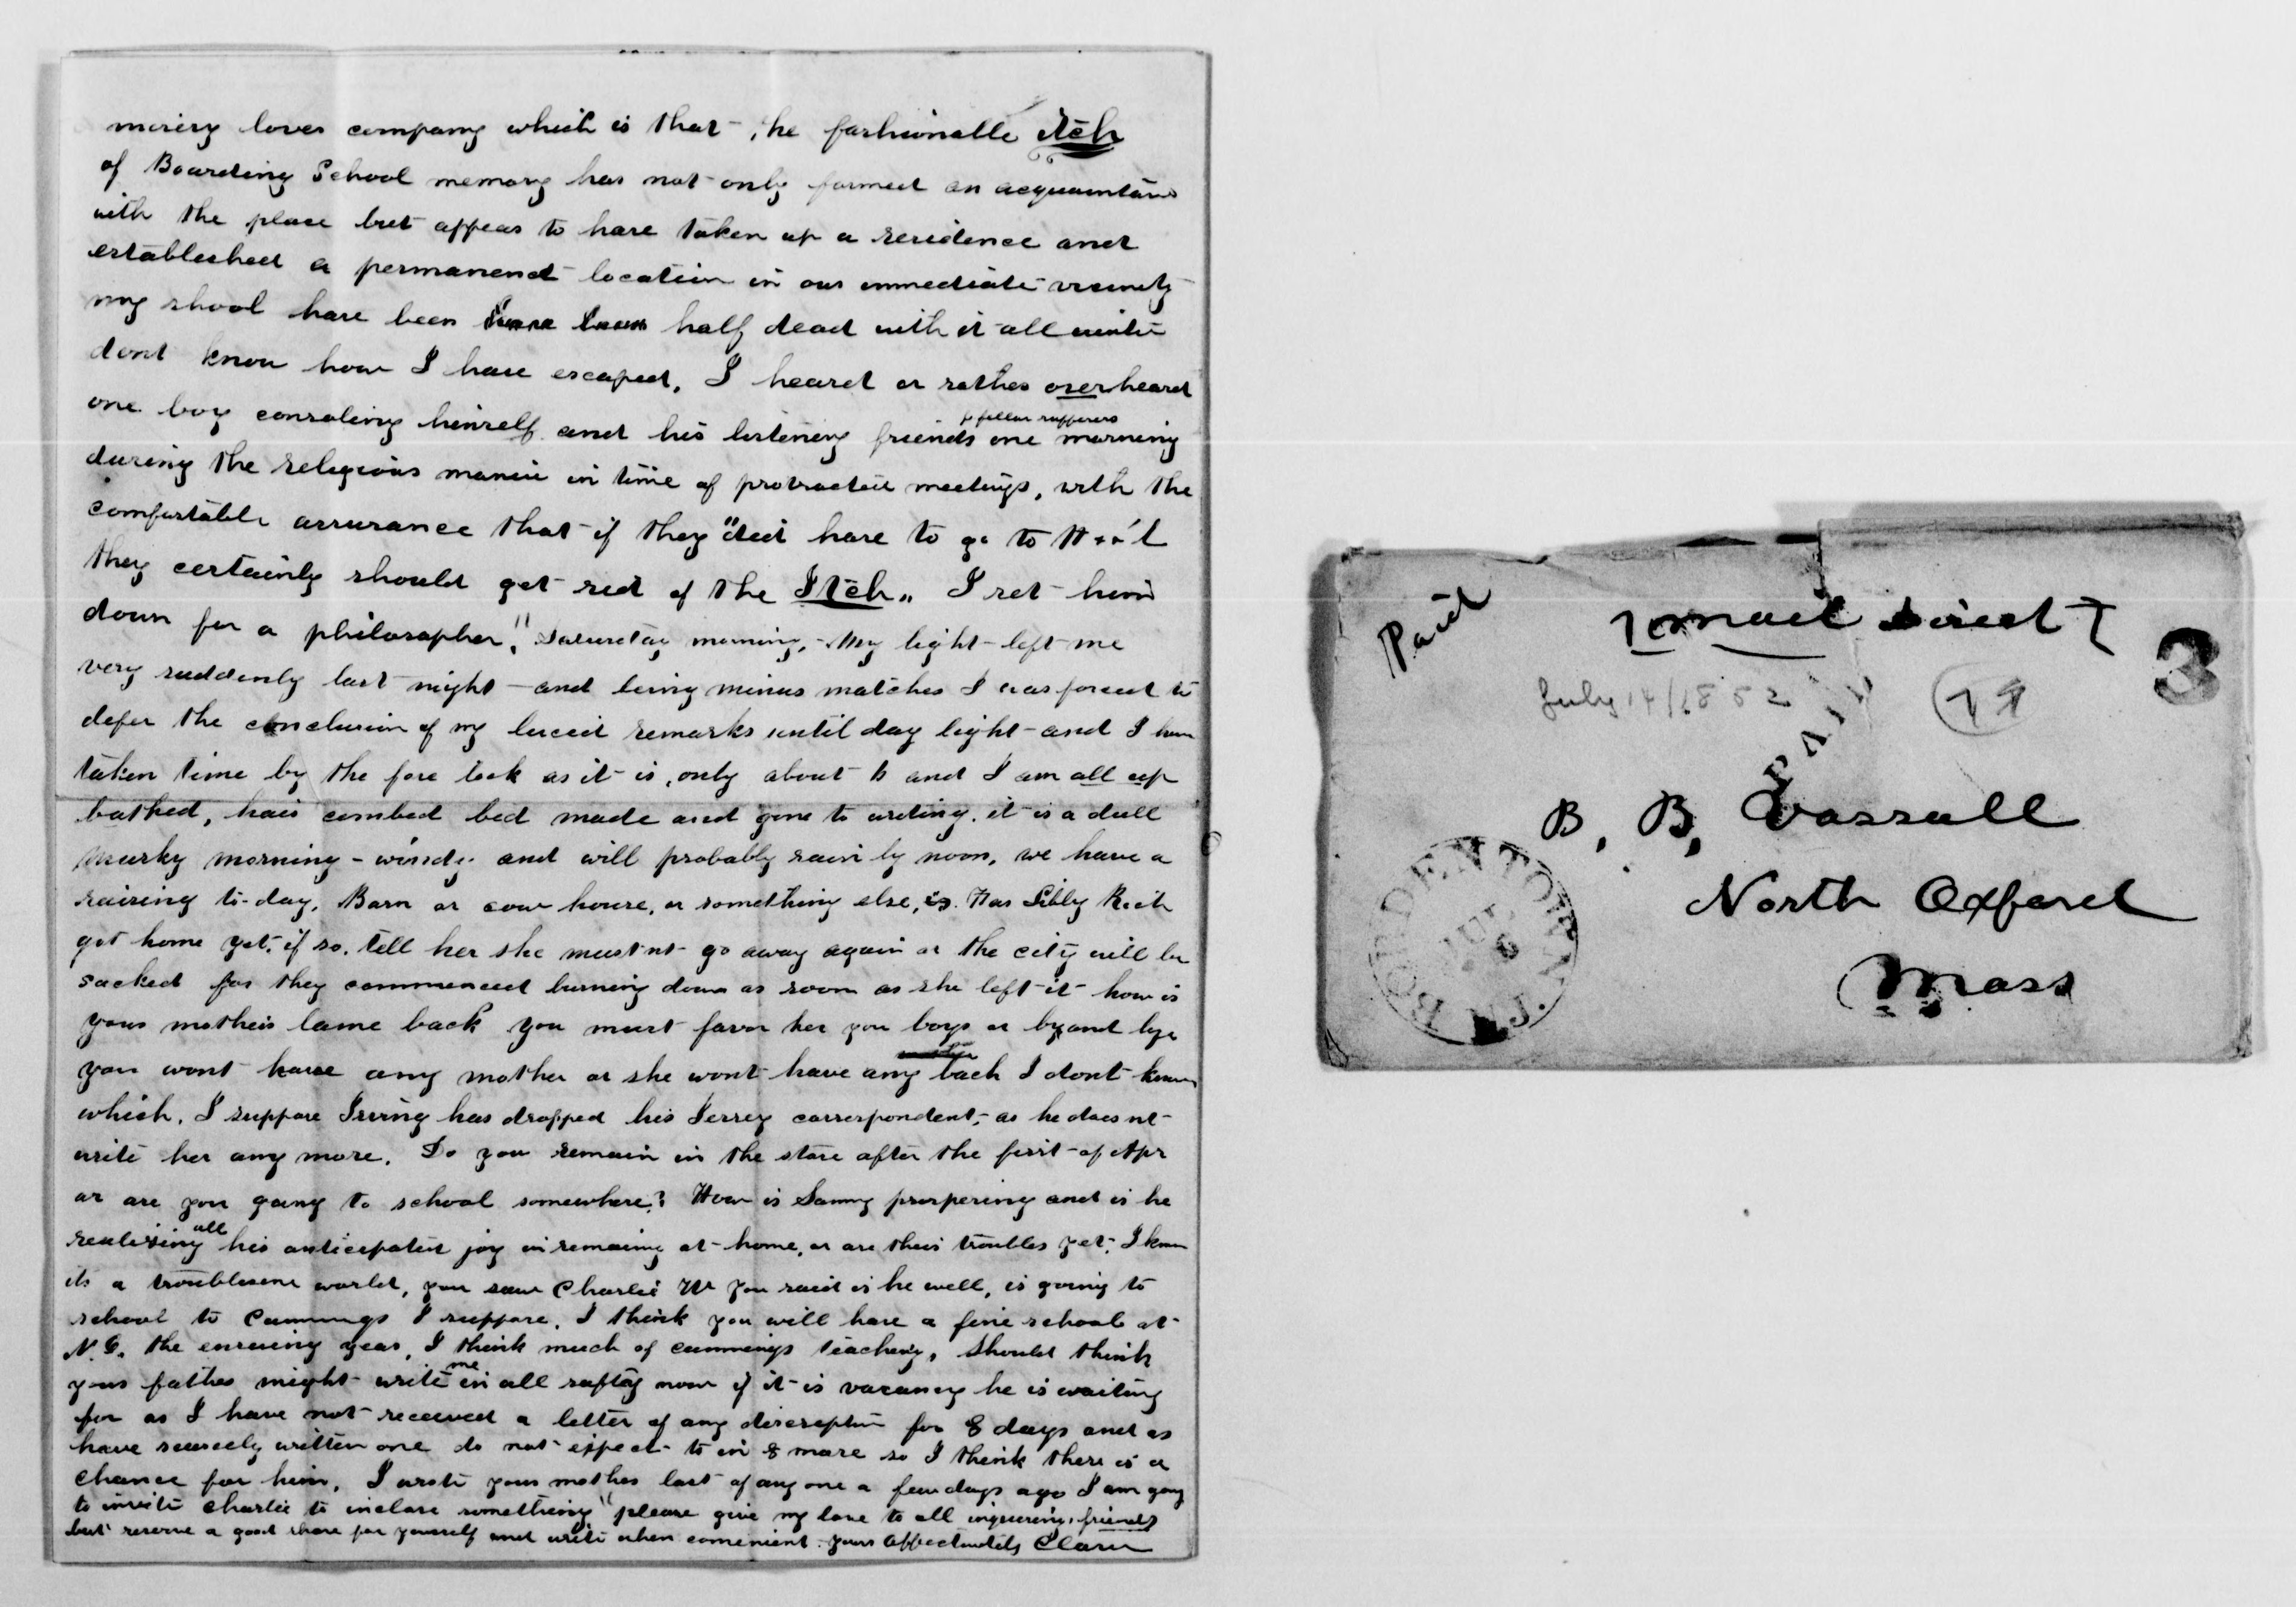 misery loves company which is that, the fashionable Itch
of Boarding School memory has not only formed an acquaintance
with the place but appears to have taken up a residence and
established a permanent location in our immediate vicinity
my shool have been half dead with it all winter
dont know how I have escaped, I heard or rather overheard
one boy consoling himself and his listening friends & fellow sufferers one morning
during the religious mania in time of protracted meetings, with the
comfortable assurance that if they "did have to go to H--'l
they certainly should get rid of the Itch" I set him
down for a philosopher," Saturday morning, - My light left me
very suddenly last night - and being minus matches I was forced to
defer the conclusion of my lucid remarks until day light - and I have
taken time by the fore lock as it is, only about 6 and I am all up
bathed, hair combed bed made and gone to writing. it is a dull
murky morning - windy and will probably rain by noon, we have a
raising to-day, Barn or cow house, or something else, is. Has Libby Rich
got home yet, if so, tell her she must nt go away again or the city will be
sacked for they commenced burning down as soon as she left it how is
your mother's lame back you must favor her you boys or by and bye
you wont have any mother or she wont have any back I dont know
which, I suppose Irving has dropped his Jersey correspondent, as he does nt
write her any more, Do you remain in the store after the first of Apr
or are you going to school somewhere? How is Sammy prospering and is he
realising all his anticipated joy in remaing at home, or are their troubles yet, I know
its a troublesome world, you saw Charlie W you said is he well, is going to
school to Cummings I suppose, I think you will have a fine school at
N. O. the ensuing year, I think much of cummings teaching, should think
your father might write me in all safty now if it is vacancy he is waiting
for as I have not received a letter of any discreption for 8 days and as
have scarcely written one do not expect to in 8 more so I think there is a
chance for him, I wrote your mother last of any one a few days ago I am going
to invite Charlie to inclose something" please give my love to all inquiring friends
but reserve a good share for yourself and write when convenient yours affectionately Clara
Paid
mail direct
3
July 14/1852
PAID
B. B. Vassall
North Oxford
Mass
BORDENTOWN N.J.
6